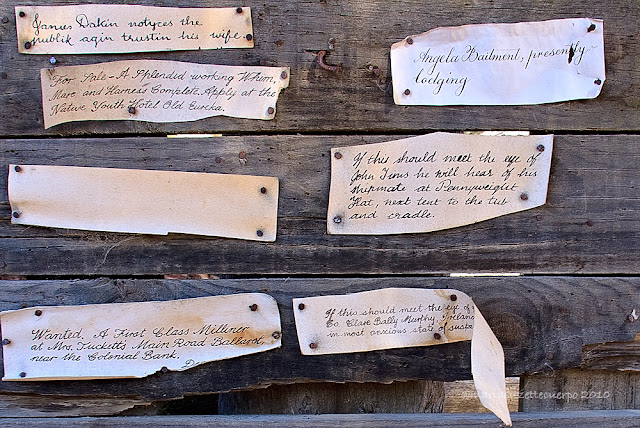 Janus Dakin notyces the
publik agin trustin his wife.
For Sale - A Splendid working Whim,
Mare and Harness Complete. Apply at the
Native Youth Hotel Old Eureka.
Angela Bailment, presently
lodging
If this should meet the eye of
John Tims he will hear of his
shipmate at Pennyweight
Flat, next tent to the tub
and cradle.
Wanted. A First Class Milliner
at Mrs. Tuckett's Main Road Ballarat,
near the Colonial Bank.
If this should meet the eye of
Co. Clare Bally Murphy, Ireland
in most anxious state of
2010